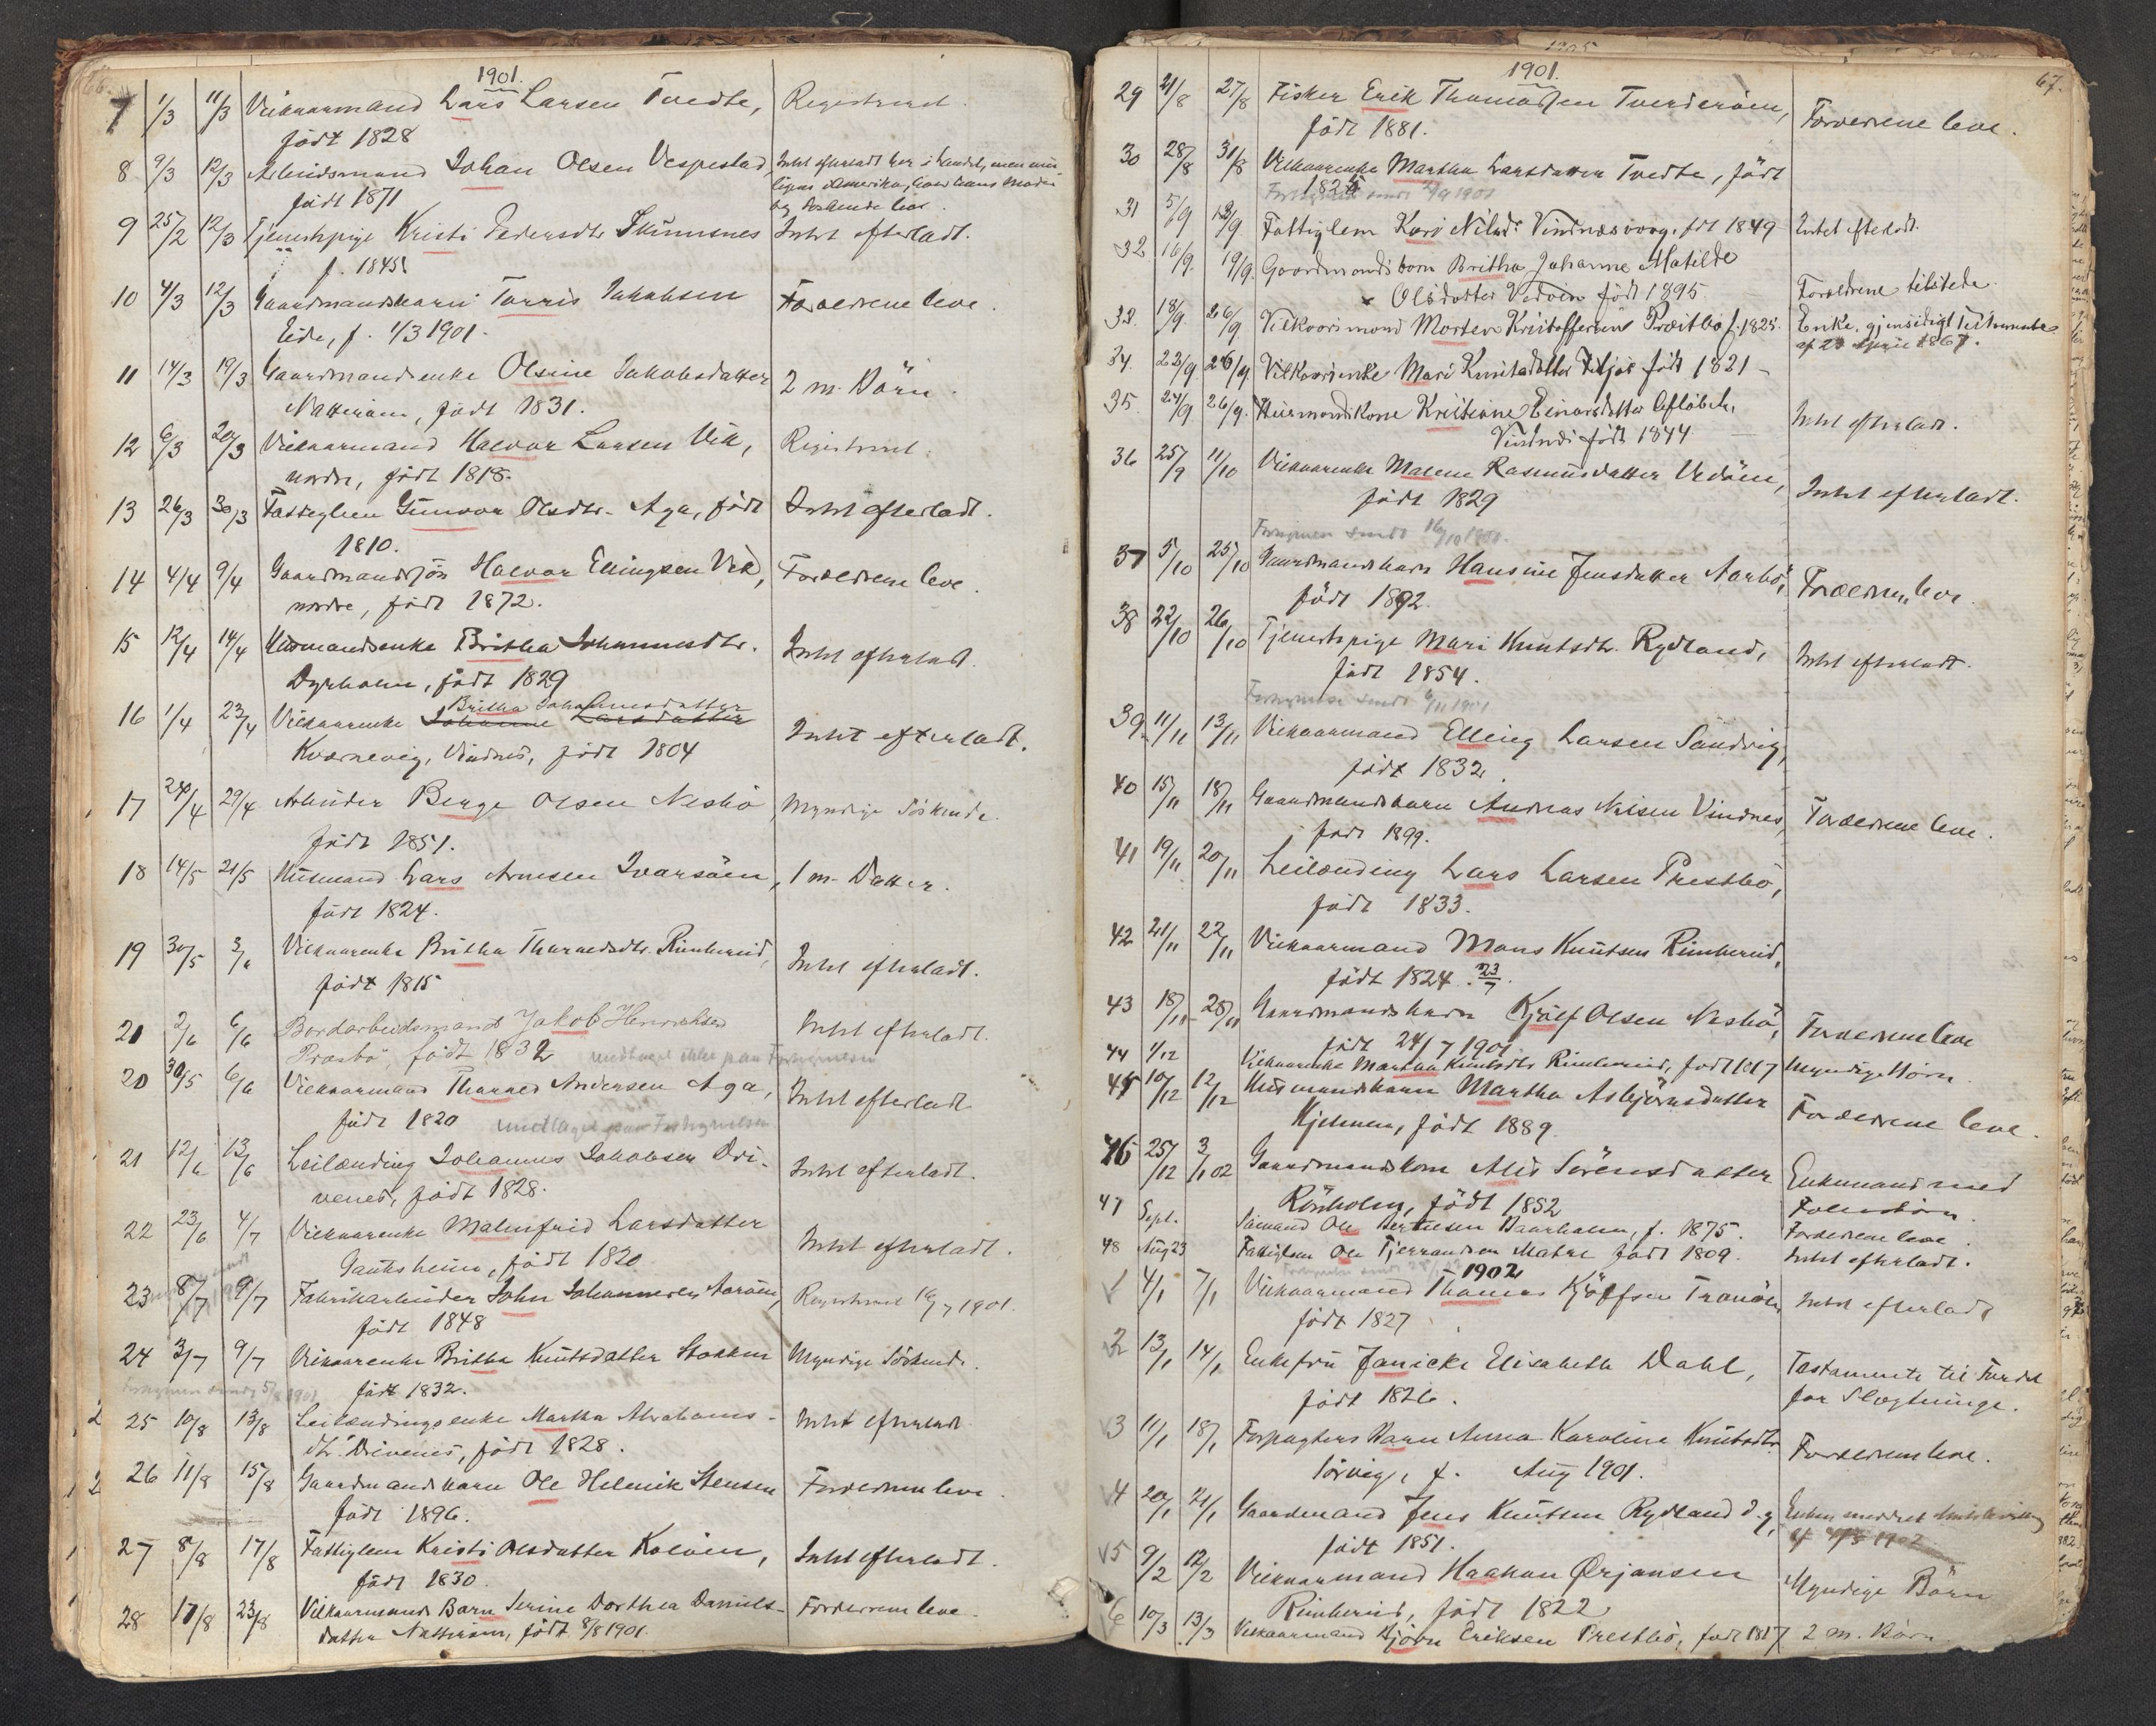 66.
1901.
7 1/3 11/3 Vilkaarmand Lars Larsen Tvedte, Registreret.
født 1828
8 9/3 12/3 Arbeidsmand Johan Olsen Vespestad, Intet efterladt her i landet, men
født 1871 Amerika, hans Moder
og Søskende leve.
9 25/2 12/3 Tjenestepige Kristi Pedersdtr Intet efterladt.
f. 1845
10 4/3 12/3 Gaardmandsbarn Torris Jakobsen Forældrene leve.
Eide, f. 1/3 1901.
11 14/3 19/3 Gaardmandsenke Olsine Jakobsdatter 2 m. Børn.
født 1831.
12 6/3 20/3 Vilkaarmand Halvor Larsen Vik, Registreret.
nordre, født 1818.
13 26/3 30/3 Fattiglem Gunvor Olsdtr. Aga, født Intet efterladt.
1810.
14 4/4 9/4 Gaardmandssøn Halvor Ellingsen Vik, Forældrene leve.
nordre, født 1872.
15 12/4 14/4 Husmandsenke Britha Johannesdtr. Intet efterladt.
Dyrholm, født 1829
Britha Johannesdatter
16 1/4 23/4 Vilkaarenke Johanne Larsdatter Intet efterladt.
Kvernevig, Vindnes, født 1804
17 24/4 29/4 Arbeider Berge Olsen Nesbø Myndige Søskende.
født 1851.
18 14/5 21/5 Husmand Lars Arnesen Ivarsøen, 1 m. Datter.
født 1824.
19 30/5 3/6 Vilkaarenke Britha Tharaldsdtr. Rimbereid, Intet efterladt.
født 1815
20 2/6 6/6 Bordarbeidsmand Jakob Henriksen Intet efterladt.
født 1832 ikke paa
20 30/5 6/6 Vilkaarmand Tharald Andersen Aga, Intet efterladt
født 1820
21 12/6 13/6 Leilænding Johannes Jakobsen Dri- Intet efterladt.
venes, født 1828.
22 23/6 4/7 Vilkaarenke Malenfrid Larsdatter Intet efterladt.
født 1820
23 8/7 9/7 Fabrikarbeider John Johannesen Registreret 16/7 1901.
født 1848
24 3/7 9/7 Vilkaarenke Britha Knutsdatter Stokken Myndige Søskende.
født 1832.
25 10/8 13/8 Leilændingsenke Martha Abrahams- Intet efterladt.
dtr. Drivenes, født 1828.
26 11/8 15/8 Gaardmandsbarn Ole Helmik Stensen Forældrene leve.
født 1896.
27 8/8 17/8 Fattiglem Kristi Olsdatter Intet efterladt.
født 1830.
28 17/8 23/8 Vilkaarmands Barn Serine Dorthea Daniels- Forældrene leve.
datter født 8/8 1901.
67.
1901.
29 21/8 27/8 Fisker Erik Thomassen Tverderøen, Forældrene leve.
født 1881.
30 28/8 31/8 Vilkaarenke Martha Larsdatter Tvedte, født
31 5/9 13/9 Fattiglem Kari Nilsd. Vindnesvaag. fdt 1849 Intet efterladt.
32 16/9. 19/9. Gaardmandsbarn Britha Johanne Matilde
Olsdatter Vedøen født 1895 Forældrene tilstede.
33. 18/9. 26/9 Vilkaarsmand Morten Kristoffersen Præstbø f. 1825. Enke, gjensidigt Testamente
af 23 April 1867.
34. 23/9 26/9. Vilkaarsenke Mari Knutsdatter født 1821 –
35. 24/9 26/9. Husmandskone Kristiane Einarsdatter
født 1844 Intet efterladt.
36 25/9 11/10 Vilkaarenke Malene Rasmusdatter Vedøen, Intet efterladt.
født 1829
16/10 1901.
37 5/10 25/10 Gaardmandsbarn Hansine Jensdatter Aarbø, Forældrene leve.
født 1892.
38 22/10 26/10 Tjenestepige Mari Knutsdtr. Rydland, Intet efterladt.
født 1854.
39. 11/11 13/11 Vilkaarmand Elling Larsen Sandvig,
født 1832.
40 15/11 18/11 Gaardmandsbarn Andreas Nilsen Vindnes, Forældrene leve.
født 1899.
41 19/11 20/11 Leilænding Lars Larsen Prestbø,
født 1833.
42 21/11 22/11 Vilkaarmand Mons Knutsen Rimbereid,
født 1824. 23/7.
43 18/11 28/11 Gaardmandsbarn Kjølf Olsen Nesbø, Forældrene leve
født 24/7 1901.
44 1/12 Vilkaarenke Martha Knutsdtr Rimbereid, født 1817 Myndige Børn.
45 10/12 12/12 Husmandsbarn Martha Asbjørnsdatter Forældrene leve.
født 1889.
46 25/12 3/1 02 Gaardmandskone Alis Sørensdatter Enkemand med
Rønholm, født 1852 Fællesbørn.
47 Sept. Sømand Ole f. 1875. Forældrene leve.
48 Aug 23 Fattiglem Ole Tjerandsen Matre født 1809. Intet efterladt.
1902
1 4/1 7/1 Vilkaarmand Thomas Intet efterladt
født 1827
2 13/1 14/1 Enkefru Janicke Elisabeth Dahl, Testamente til Fordel
født 1826. for Slægtninge.
3 11/1 18/1 Forpagters Barn Anna Karoline Knutsdtr. Forældrene leve.
f. Aug 1901.
4 20/1 21/1 Gaardmand Jens Knutsen Rydland d.y, Enken
født 1851.
5 9/2 12/2 Vilkaarmand Haakon Ørjansen Myndige Børn
Rimbereid, født 1822
6 10/3 13/3 Vilkaarmand Bjørn Eriksen Prestbø, født 1817 2 m. Børn.